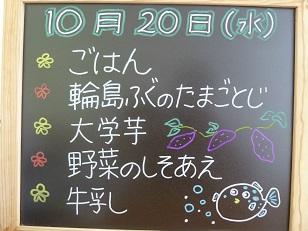 10月20日(水)
ごはん
輪島ふぐのたまごとじ
大学芋
野菜のしそあえ
牛乳し